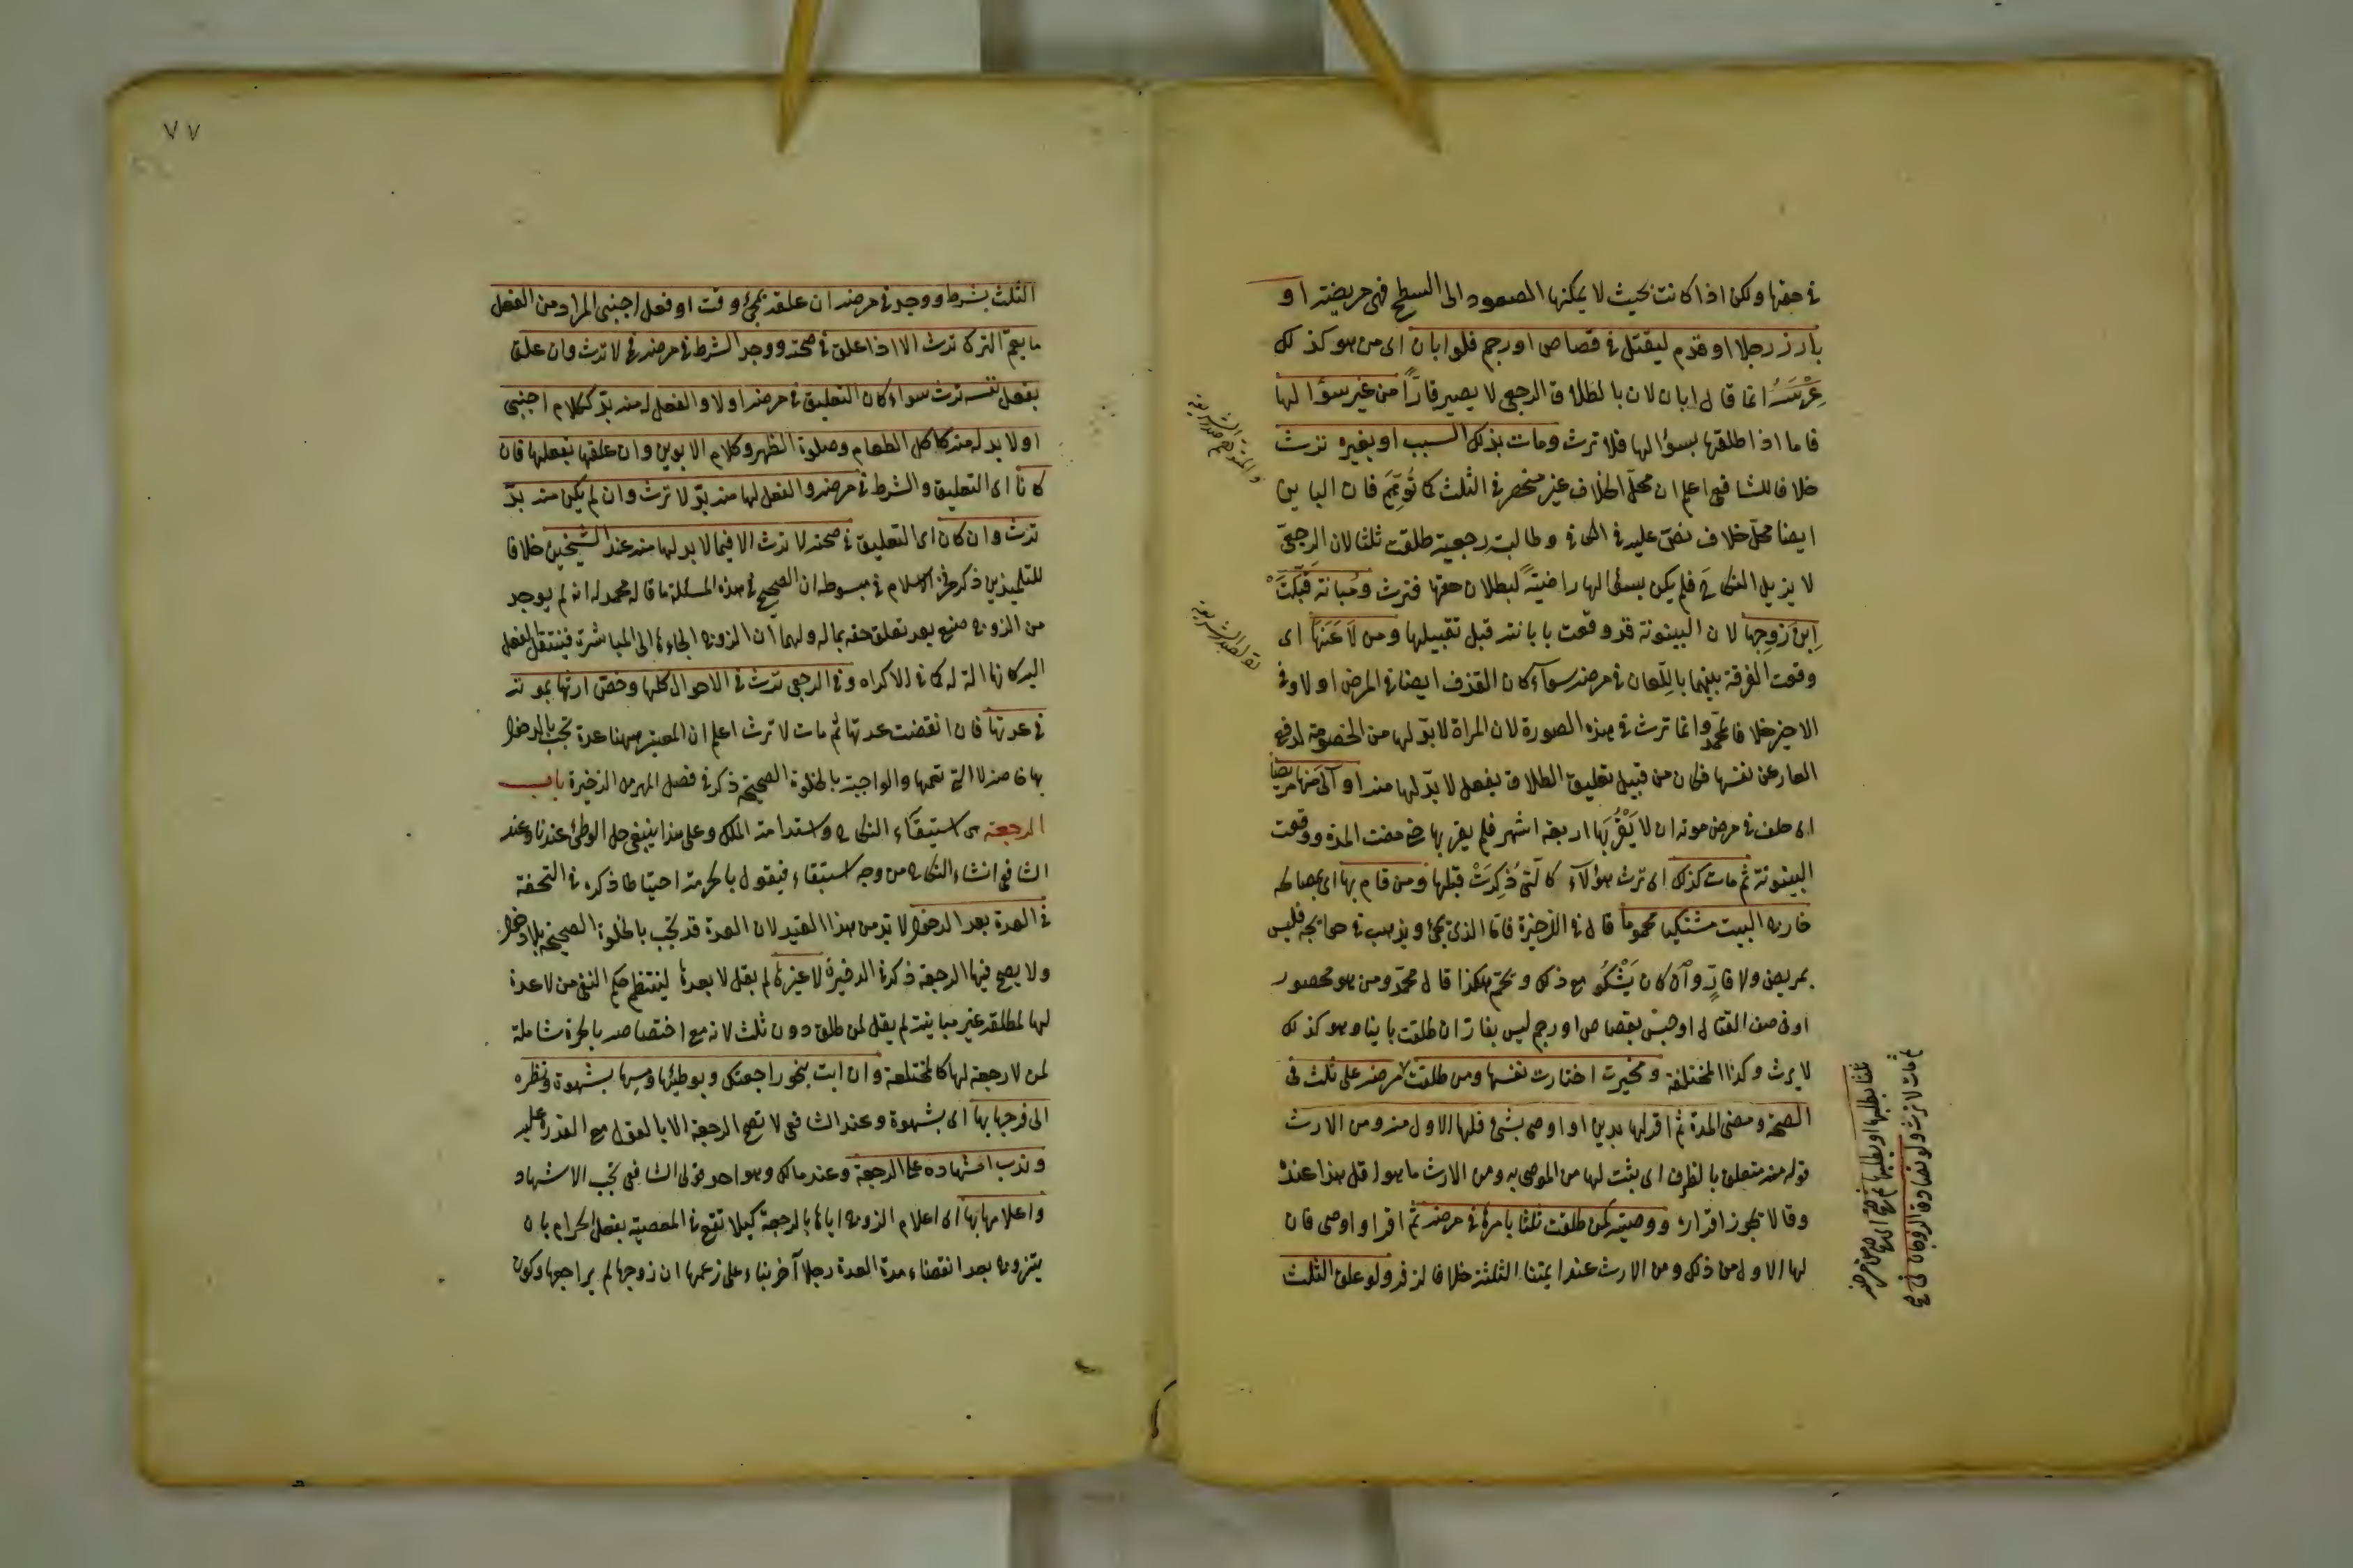 في حقها ولكن اذا كانت بحيث لا يمكنها الصعود الى السطح فهي مريضة او
بارز رجلا او قدم ليقتل في قصاص او رجم فلو ابان اى من هو كذلك
عِرْسَهُ انما قال ابان لان بالطلاق الرجعى لا يصير فارًّا من غير سؤالها
فاما اذا طلقها بسؤالها فلا ترث ومات بذلك السبب او بغيره ترث
خلافا للشافعى اعلم ان محلّ الخلاف غير منحصر في الثلث كما تُوُهِّمَ فان الباين
ايضا محلّ خلاف نصّ عليه في الكافى وطالبت رجعية طلقت ثلثا لان الرجعىّ
لا يزيل النكاح فلم يكن بسؤالها راضيةً لبطلان حقها فترث ومُبانته قَبَّلَتْ
اِبنَ زوجِها لان البينونة قد وقعت بابانته قبل تقبيلها ومن لَاعَنَهَا اى
وقعت الفرقة بينهما باللِعان في مرضه سوآء كان القذف ايضا في المرض او لا وفى
الاخير خلافا لمحمد وانما ترث في هذه الصورة لان المراة لا بدّ لها من الخصومة لدفع
العار عن نفسها فكان من قبيل تعليق الطلاق بفعل لا بدّ لها منه او آلى منها مريضا
اى حلف في مرض موته ان لا يَقْرُبَها اربعة اشهر فلم يقربها حتى مضت المدة ووقعت
البينونة ثم مات كذلك اى ترث هؤلآء كالّتى ذُكِرَتْ قبلها ومن قام بها اى بمصالحه
خارج البيت مشتكيا محموما قال في الذخيرة فاما الذى يجئ ويذهب في حوايجه فليس
بمريض ولا فارٍّ وان كان يَشْكُو مع ذلك ويحمّ هكذا قال محمّد ومن هو محصور
او في صف القتال او حبس بقصاص او رجم ليس بفارّ ان طلقت باينا وهو كذلك
لا يرث وكذا المختلعة ومخيرة اختارت نفسها ومن طلقت لا مرضه على ثلث في
الصحة ومضى المدة ثم اقر لها بدين او اوصى بشئ فلها الاول منه ومن الارث
قوله منه متعلق بالظرف اى يثبت لها من الموصى به ومن الارث ما هو اقل هذا عنده
وقالا يجوز اقراره ووصيته كمن طلقت ثلثا بامرها في مرضه ثم اقر او اوصى فان
لها الاول من ذلك ومن الارث عند ايمتنا الثلثة خلافا لزفر ولو علق الثلث
ثم مات لا ترث ولو تصادق الزوجان
٧٧
الثلث بشرط ووجد في مرضه ان علقه بمجئ وقت او فعل اجنبى المراد من الفعل
ما يعمّ الترك ترث الا اذا علق في صحته ووجد الشرط في مرضه لا ترث وان علق
بفعل نفسه ترث سواء كان التعليق في مرضه او لا والفعل له منه بدّ ككلام اجنبى
او لا بد له منه كاكل الطعام وصلوة الظهر وكلام الابوين وان علقها بفعلها فان
كانا اى التعليق والشرط في مرضه والفعل لها منه بدّ لا ترث وان لم يكن منه بدّ
ترث وان كان اى التعليق في صحته لا ترث الا فيما لا بد لها منه عند الشيخين خلافا
للتلميذين ذكر فخر الاسلام في مبسوطه ان الصحيح في هذه المسئلة ما قاله محمد له انه لم يوجد
من الزوج صنع بعد تعلق حقها بماله ولهما ان الزوج الجاءها الى المباشرة فينتقل الفعل
اليه كانها الة له كما في الاكراه وفى الرجعى ترث في الاحوال كلها وخصّ ارثها بموته
في عدتها فان انقضت عدتها ثم مات لا ترث اعلم ان المعتبر ههنا عدة تجب بالدخول
بها خاصة لا التي تعمها والواجبة بالخلوة الصحيحة ذكره في فصل المهر من الذخيرة باب
الرجعة هى استبقاء النكاح واستدامة الملك وعلى هذا ينبغى حل الوطئ عندنا وعند
الشافعى انشاء النكاح من وجه استبقاء فيقول بالحرمة احتياطا ذكره في التحفة
في العدة بعد الدخول لا بد من هذا القيد لان العدة قد تجب بالخلوة الصحيحة بلا دخول
ولا يصح فيها الرجعة ذكره في الذخيرة لا غيرها لم يقل لا بعدها لينتظم حكم النفى من لا عدة
لها لمطلقة غير مباينة لم يقل لمن طلق دون ثلث لانه مع اختصاصه بالحرة شاملة
لمن لا رجعة لها كالمختلعة وان ابت بنحو راجعتك وبوطئها ومسها بشهوة ونظره
الى فرجها بها اى بشهوة وعند الشافعى لا تصح الرجعة الا بالقول مع القدرة عليه
وندب اشهاده على الرجعة وعند مالك وهو احد قولى الشافعى تجب الاشهاد
واعلامها بها اى اعلام الزوج اياها بالرجعة كيلا تقع في المعصية بفعل الحرام بان
يتزوج بعد انقضاء مدة العدة رجلا آخر بناء على زعمها ان زوجها لم يراجعها وكون